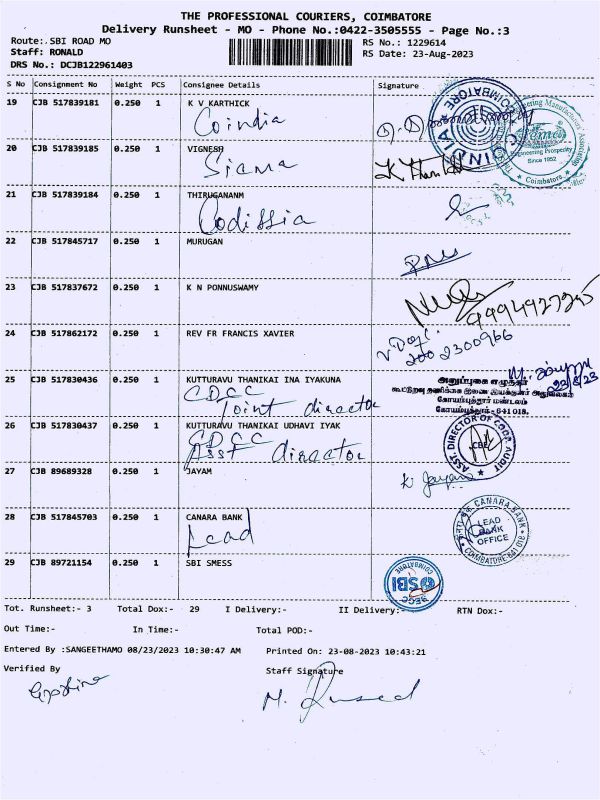 THE PROFESSIONAL COURIERS, COIMBATORE
Delivery Runsheet - MO - Phone No.:0422-3505555 - Page No.:3
Route:.SBI ROAD MO
RS No.: 1229614
Staff: RONALD
RS Date: 23-Aug-2023
DRS No.: DCJB122961403
S No Consignment No Weight PCS Consignee Details Signature
19 CJB 517839181 0.250 1 K V KARTHICK
Coindia
20 CJB 517839185 0.250 1 VIGNESH
Siema
Engineering Prosperity
Since 1952
Coimbatore
21 CJB 517839184 0.250 1 THIRUGANANM
Codissia
22 CJB 517845717 0.250 1 MURUGAN
23 CJB 517837672 0.250 1 K N PONNUSWAMY
24 CJB 517862172 0.250 1 REV FR FRANCIS XAVIER
25 CJB 517830436 0.250 1 KUTTURAVU THANIKAI INA IYAKUNA
CDCC
Joint director
அனுப்புகை எழுத்தர்
கோயம்புத்தூர் மண்டலம்
கோயம்புத்தூர் - 641 018.
23/8/23
26 CJB 517830437 0.250 1 KUTTURAVU THANIKAI UDHAVI IYAK
CDCC
Asst director
ASST. DIRECTOR OF COOP. AUDIT
CBE
27 CJB 89689328 0.250 1 JAYAM
28 CJB 517845703 0.250 1 CANARA BANK
Lead
CANARA BANK
LEAD BANK OFFICE
COIMBATORE-641018
29 CJB 89721154 0.250 1 SBI SMESS
SBI
COIMBATORE
Tot. Runsheet:- 3 Total Dox:- 29 I Delivery:- II Delivery:- RTN Dox:-
Out Time:- In Time:- Total POD:-
Entered By :SANGEETHAMO 08/23/2023 10:30:47 AM Printed On: 23-08-2023 10:43:21
Verified By Staff Signature